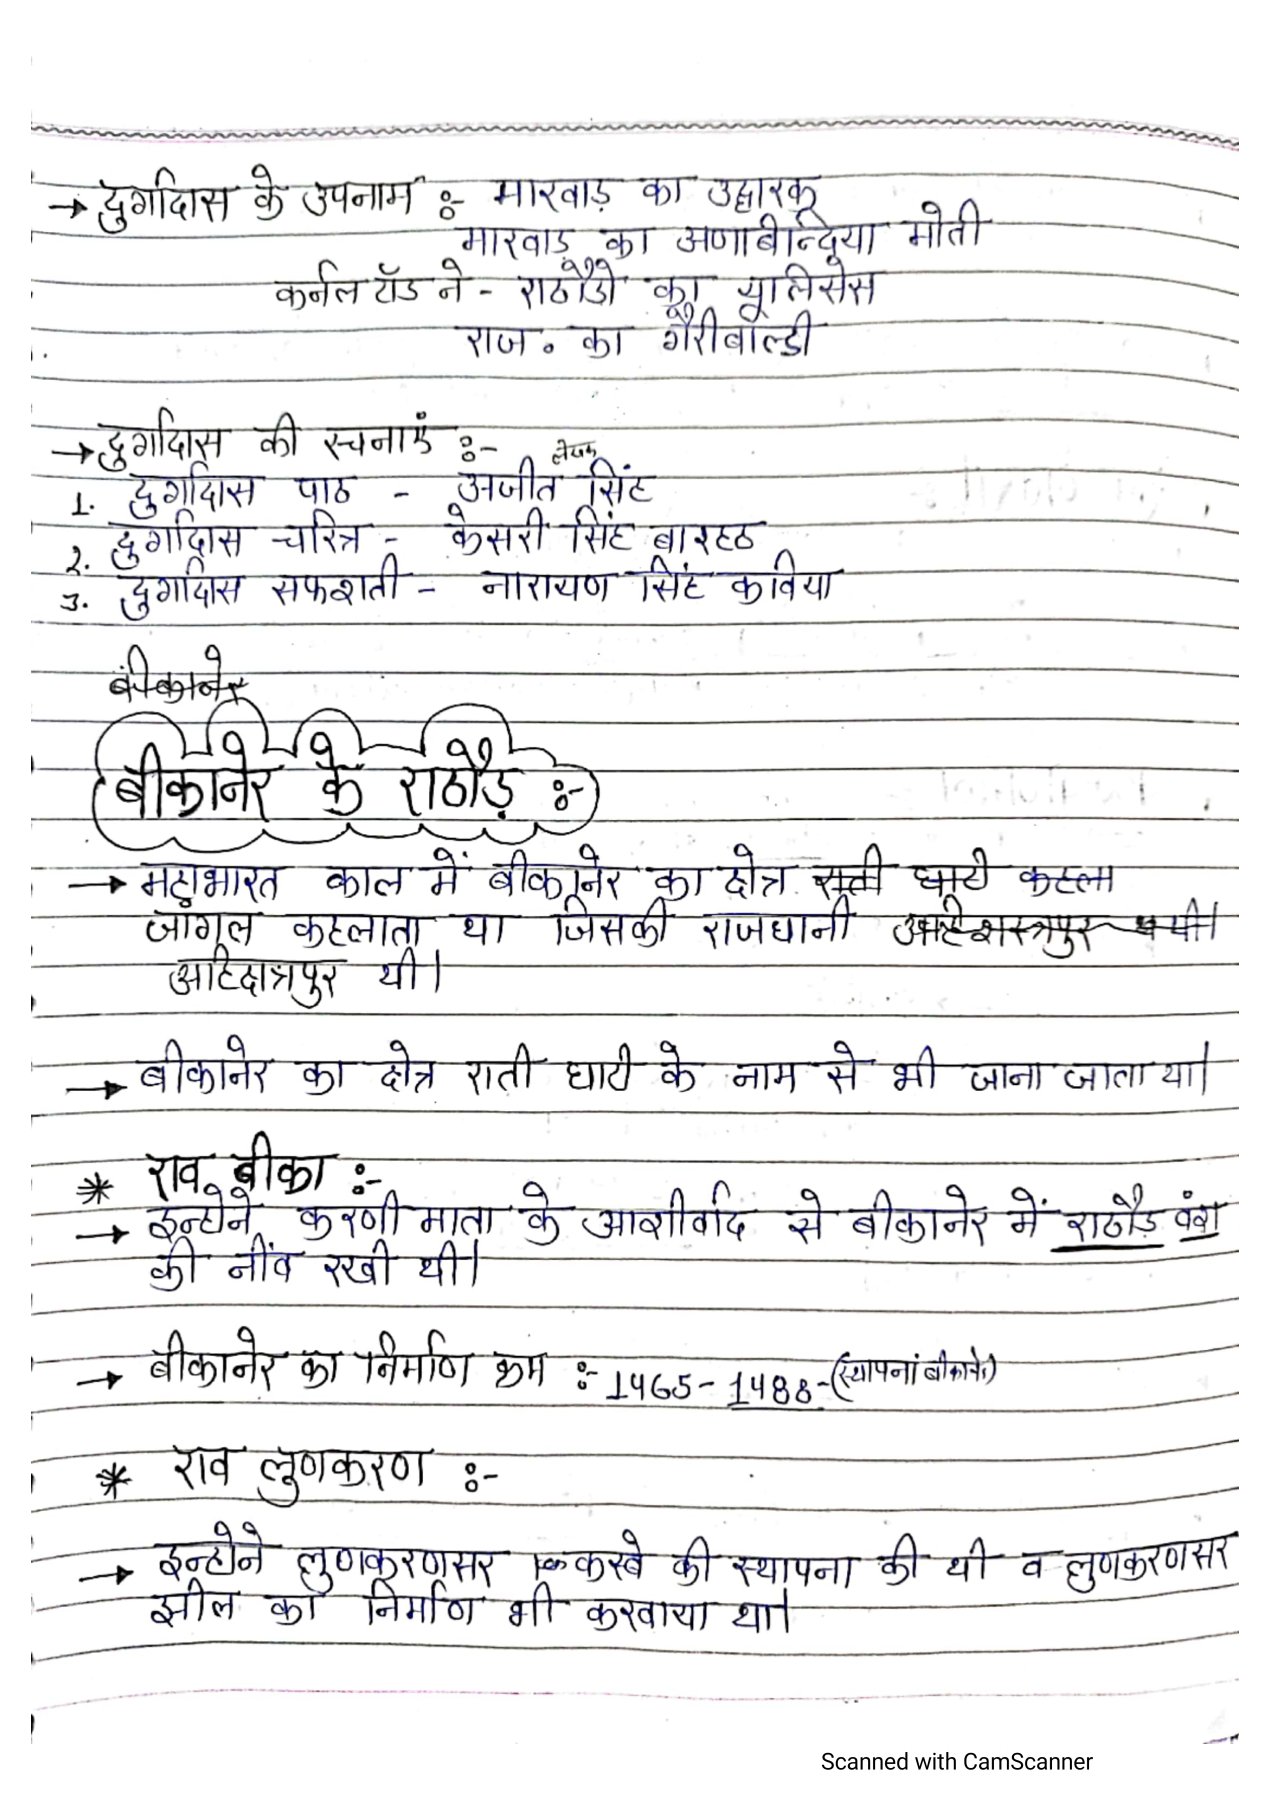 → दुर्गादास के उपनाम :- मारवाड़ का उद्धारक
मारवाड़ का अणबीन्दिया मोती
कर्नल टॉड ने - राठौडो का यूलिसेस
राज॰ का गैरीबाल्डी
→ दुर्गादास की रचनाएं :-
लेखक
1. दुर्गादास पाठ - अजीत सिंह
2. दुर्गादास चरित्र - केसरी सिंह बारहठ
3. दुर्गादास सफशती - नारायण सिंह कविया
बीकानेर
बीकानेर के राठौड़ :-
→ महाभारत काल में बीकानेर का क्षेत्र राती घाटी कहला
जांगल कहलाता था जिसकी राजधानी थी।
अहिक्षत्रपुर थी।
→ बीकानेर का क्षेत्र राती घाटी के नाम से भी जाना जाता था।
* राव बीका :-
→ इन्होने करणी माता के आशीर्वाद से बीकानेर में राठौड़ वंश
की नींव रखी थी।
→ बीकानेर का निर्माण क्रम :- 1465 - 1488 - (स्थापनां बीकानेर)
* राव लुणकरण :-
→ इन्होने लुणकरणसर कस्बे की स्थापना की थी व लुणकरणसर
झील का निर्माण भी करवाया था।
Scanned with CamScanner